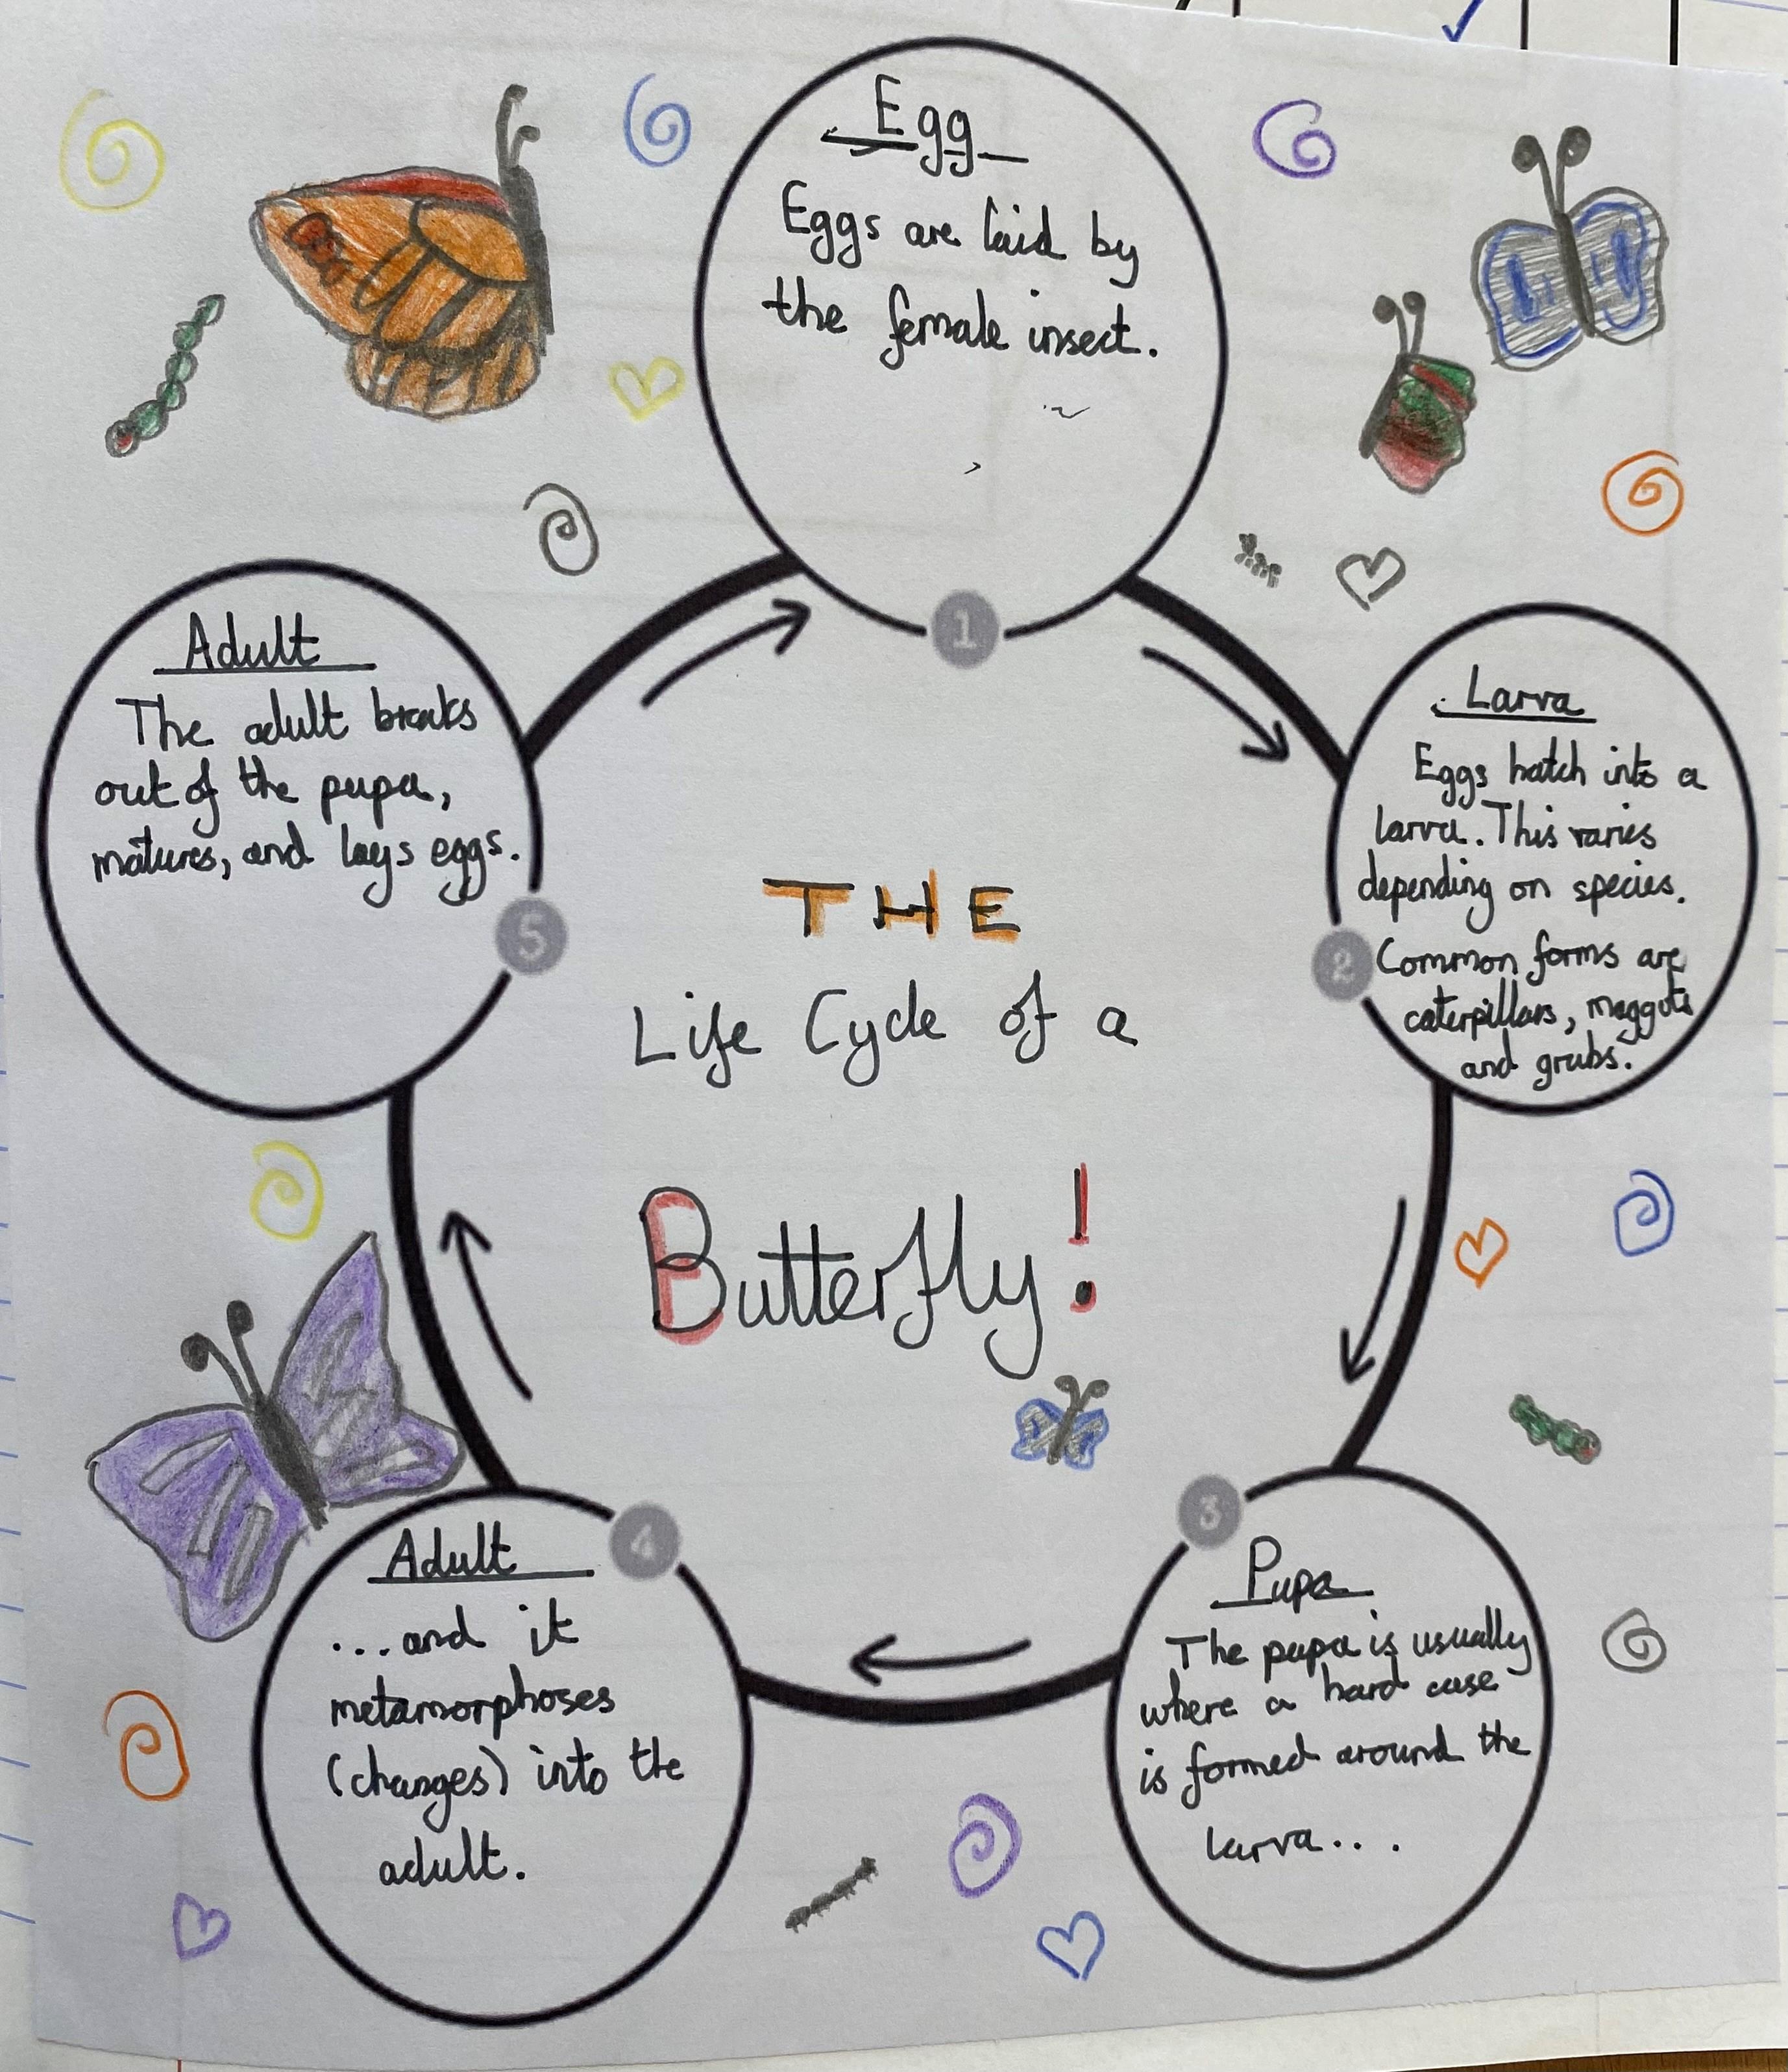 Egg
Eggs are laid by
the female insect.
1
Larva
Eggs hatch into a
larva. This varies
depending on species.
Common forms are
caterpillars, maggots
and grubs.
2
3
Pupa
The pupa is usually
where a hard case
is formed around the
larva...
4
Adult
...and it
metamorphoses
(changes) into the
adult.
Adult
The adult breaks
out of the pupa,
matures, and lays eggs.
5
THE
Life Cycle of a
Butterfly!